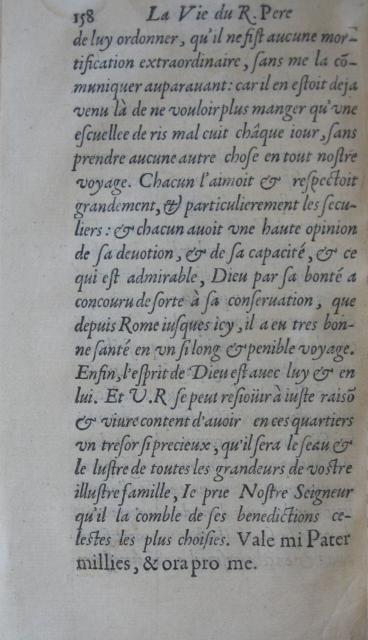 158 La Vie du R. Pere
de luy ordonner, qu'il ne fist aucune mor-
tification extraordinaire, sans me la cõ-
muniquer auparauant: car il en estoit deja
venu là de ne vouloir plus manger qu'vne
escuellee de ris mal cuit châque iour, sans
prendre aucune autre chose en tout nostre
voyage. Chacun l'aimoit & respectoit
grandement, & particulierement les secu-
liers: & chacun auoit vne haute opinion
de sa deuotion, & de sa capacité, & ce
qui est admirable, Dieu par sa bonté a
concouru de sorte à sa conseruation, que
depuis Rome iusques icy, il a eu tres bon-
ne santé en vn si long & penible voyage.
Enfin, l'esprit de Dieu est auec luy & en
lui. Et V.R se peut resioüir à iuste raisõ
& viure content d'auoir en ces quartiers
vn tresor si precieux, qu'il sera le seau &
le lustre de toutes les grandeurs de vostre
illustre famille, Ie prie Nostre Seigneur
qu'il la comble de ses benedictions ce-
lestes les plus choisies. Vale mi Pater
millies, & ora pro me.